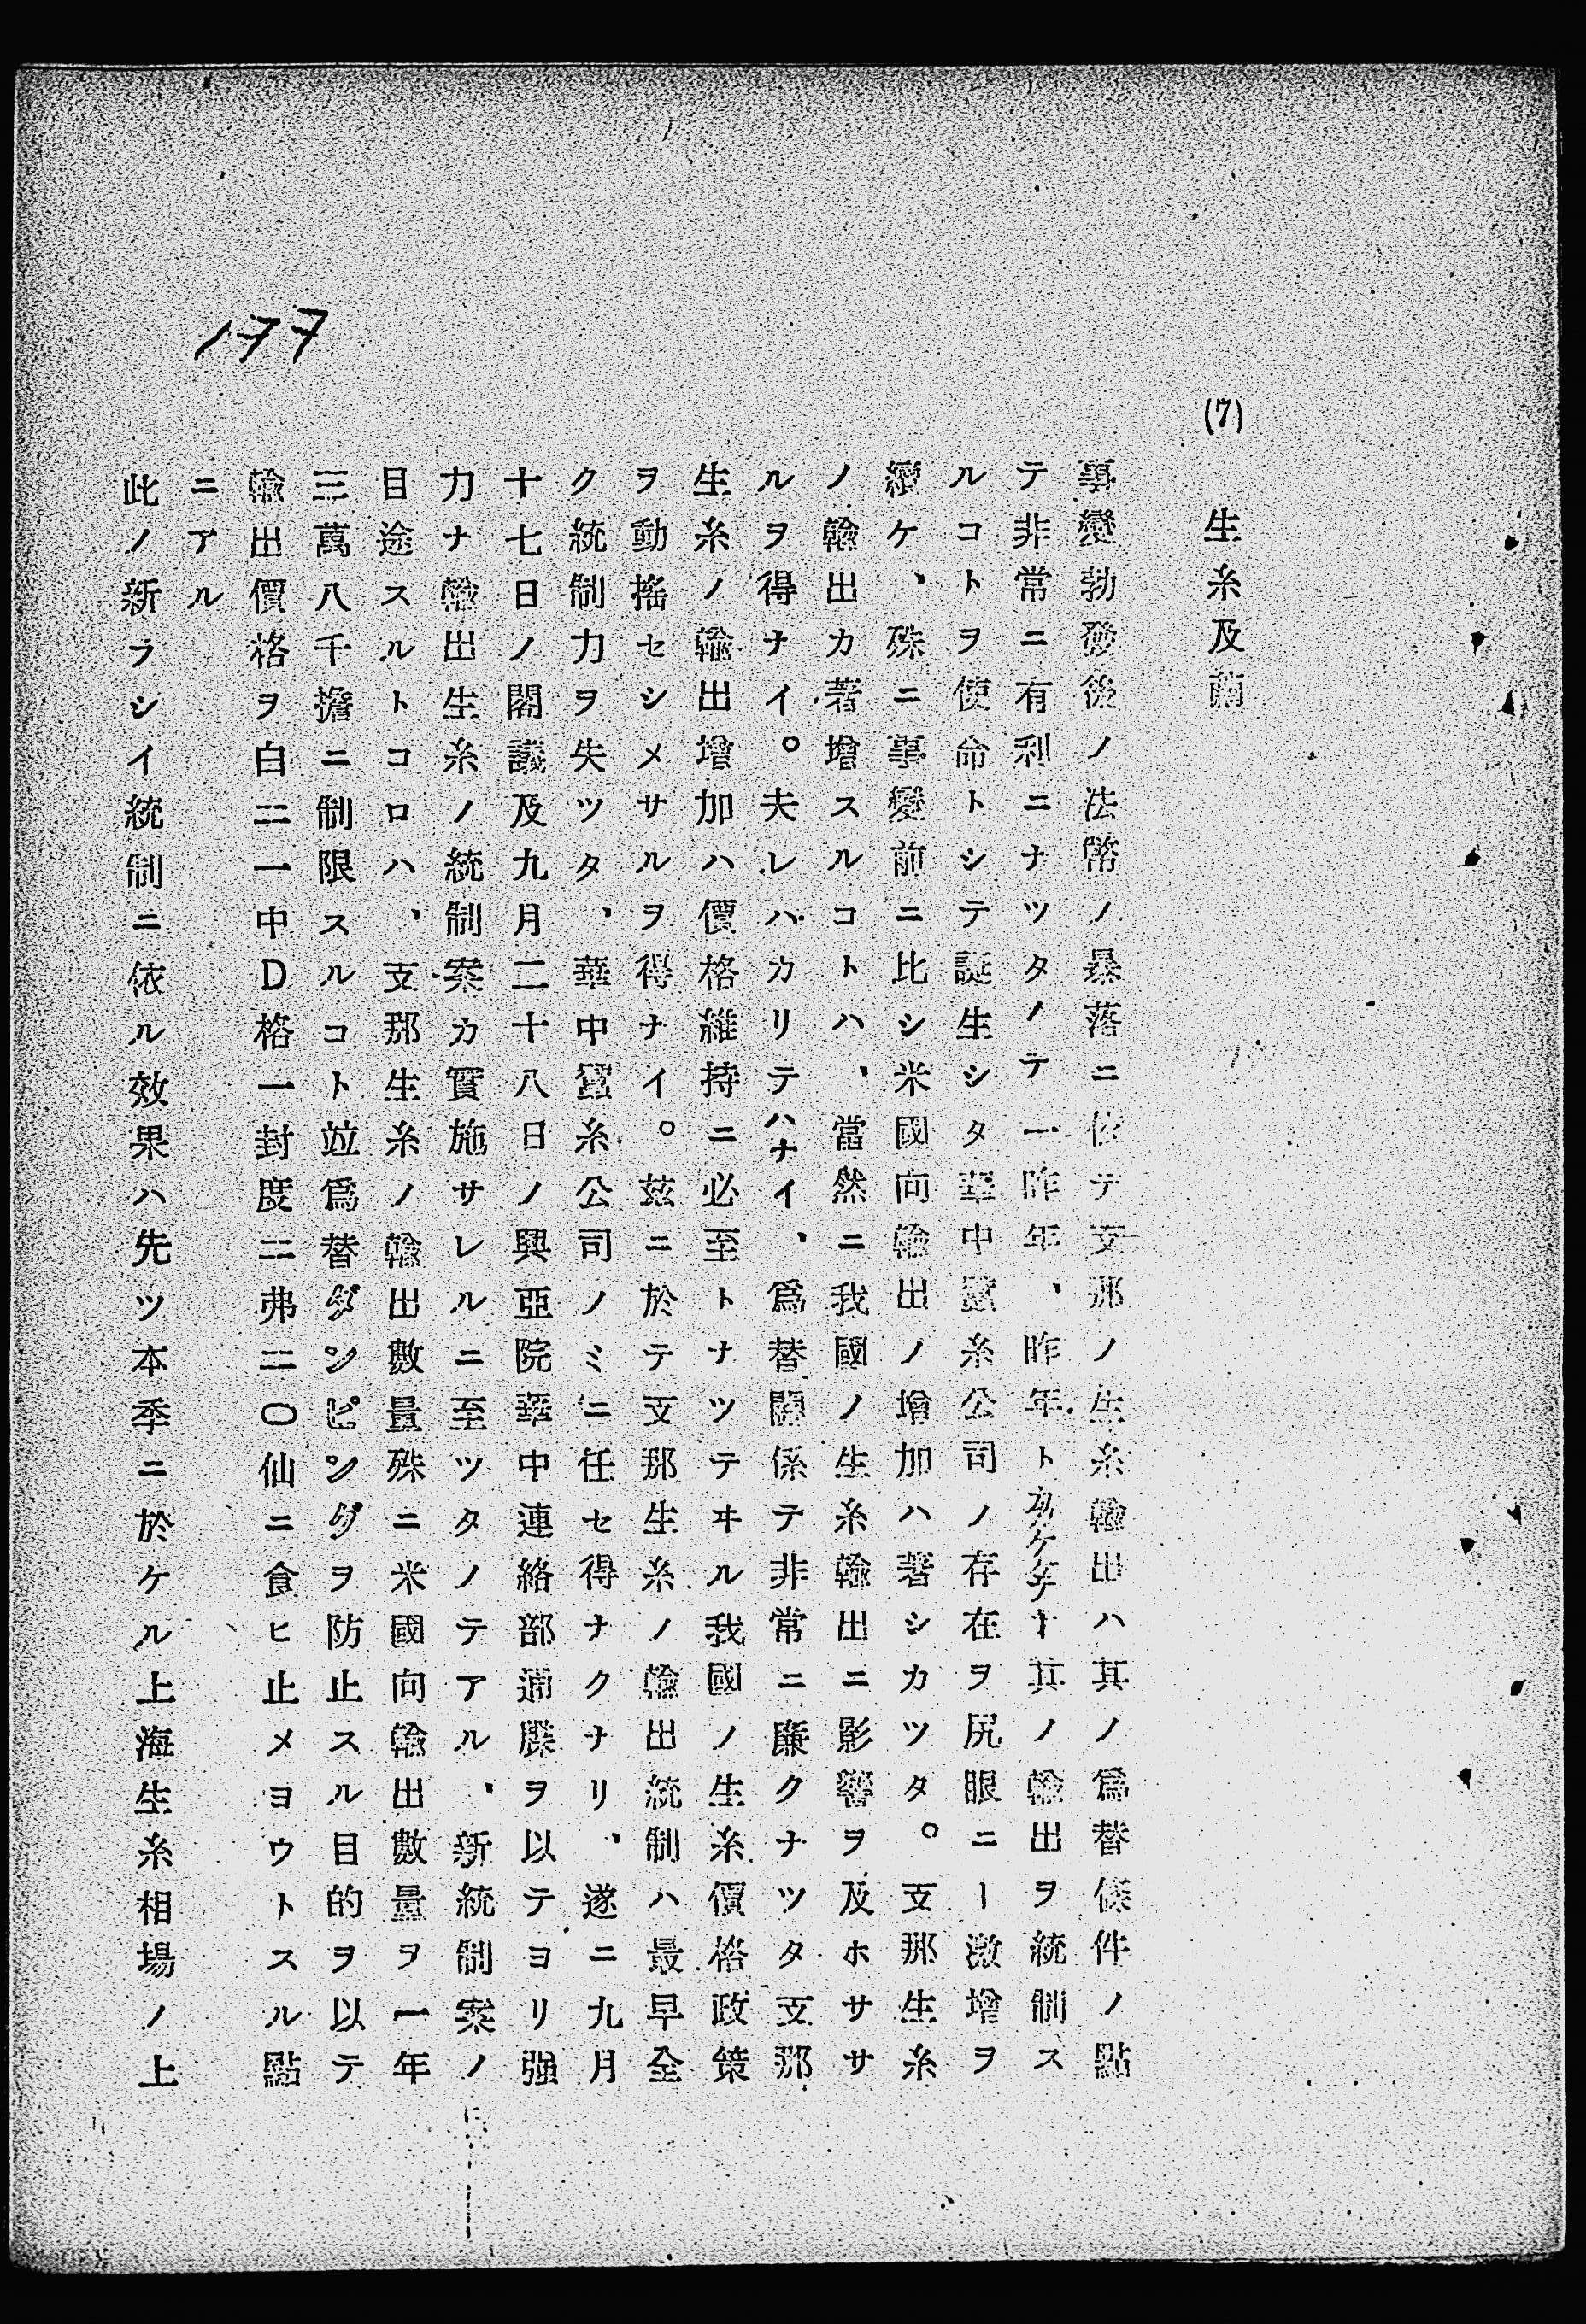 177
(7) 生糸及繭
事變勃發後ノ法幣ノ暴落ニ依テ支那ノ生糸輸出ハ其ノ爲替條件ノ點
テ非常ニ有利ニナツタノテ一昨年、昨年トカケテ其ノ輸出ヲ統制ス
ルコトヲ使命トシテ誕生シタ華中蠶糸公司ノ存在ヲ尻眼ニー激增ヲ
續ケ、殊ニ事變前ニ比シ米國向輸出ノ增加ハ著シカツタ。支那生糸
ノ輸出カ著增スルコトハ、當然ニ我國ノ生糸輸出ニ影響ヲ及ホササ
ルヲ得ナイ。夫レハカリテハナイ、爲替關係テ非常ニ廉クナツタ支那
生糸ノ輸出增加ハ價格維持ニ必至トナツテヰル我國ノ生糸價格政策
ヲ動搖セシメサルヲ得ナイ。玆ニ於テ支那生糸ノ輸出統制ハ最早全
ク統制力ヲ失ツタ、華中蠶糸公司ノミニ任セ得ナクナリ、遂ニ九月
十七日ノ閣議及九月二十八日ノ興亞院華中連絡部通牒ヲ以テヨリ强
力ナ輸出生糸ノ統制案カ實施サレルニ至ツタノテアル、新統制案ノ
目途スルトコロハ、支那生糸ノ輸出數量殊ニ米國向輸出數量ヲ一年
三萬八千擔ニ制限スルコト竝爲替ダンピングヲ防止スル目的ヲ以テ
輸出價格ヲ白二一中D格一封度二弗二〇仙ニ食ヒ止メヨウトスル點
ニアル
此ノ新ラシイ統制ニ依ル效果ハ先ツ本季ニ於ケル上海生糸相場ノ上